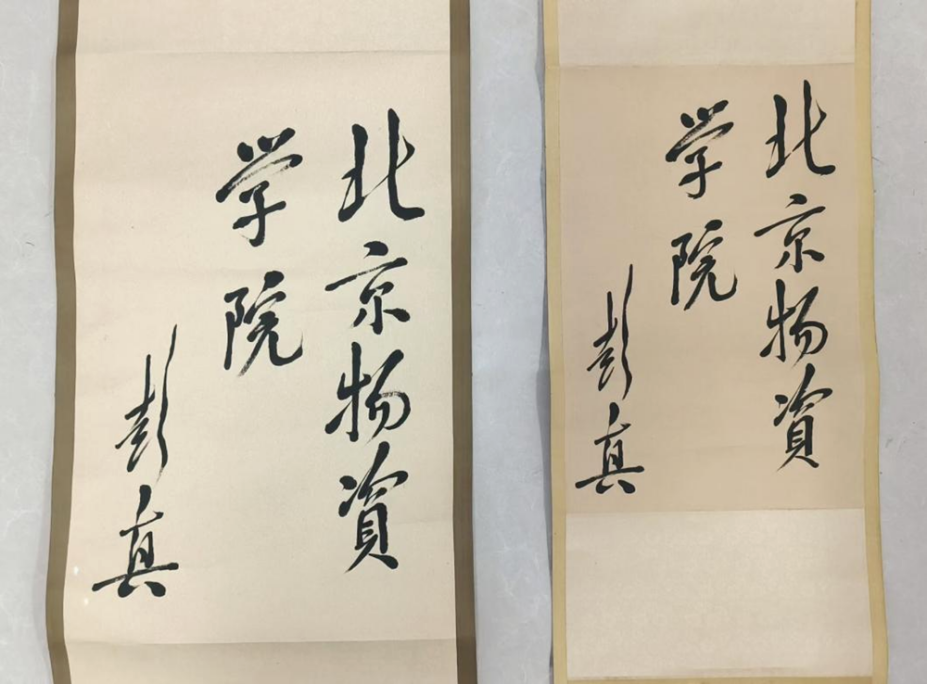 北京物资
学院
彭真
北京物资
学院
彭真